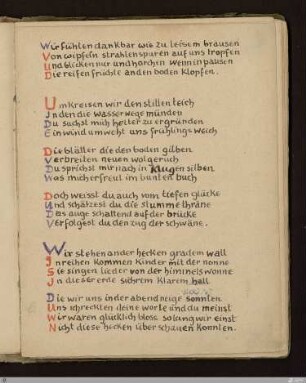 Wir fühlen dankbar wie zu leisem brausen
Von wipfeln strahlenspuren auf uns tropfen
Und blicken nur und horchen wenn in pausen
Die reifen früchte an den boden klopfen.

Umkreisen wir den stillen teich
In den die wasserwege münden
Du suchst mich heiter zu ergründen
Ein wind umweht uns frühlingsweich

Die blätter die den boden gilben
Verbreiten neuen wolgeruch
Du sprichst mir nach in klugen silben
Was mich erfreut im bunten buch

Doch weisst du auch vom tiefen glücke
Und schätzest du die stumme thräne
Das auge schattend auf der brücke
Verfolgest du den zug der schwäne.

Wir stehen an der hecken gradem wall
In reihen kommen kinder mit der nonne
Sie singen lieder von der himmelswonne
In dieser erde sichrem klarem hall

Die wir uns in der abendneige sonnten
Uns schreckten deine worte und du meinst
Wir waren glücklich bloss solang wir einst
Nicht diese hecken überschauen konnten.